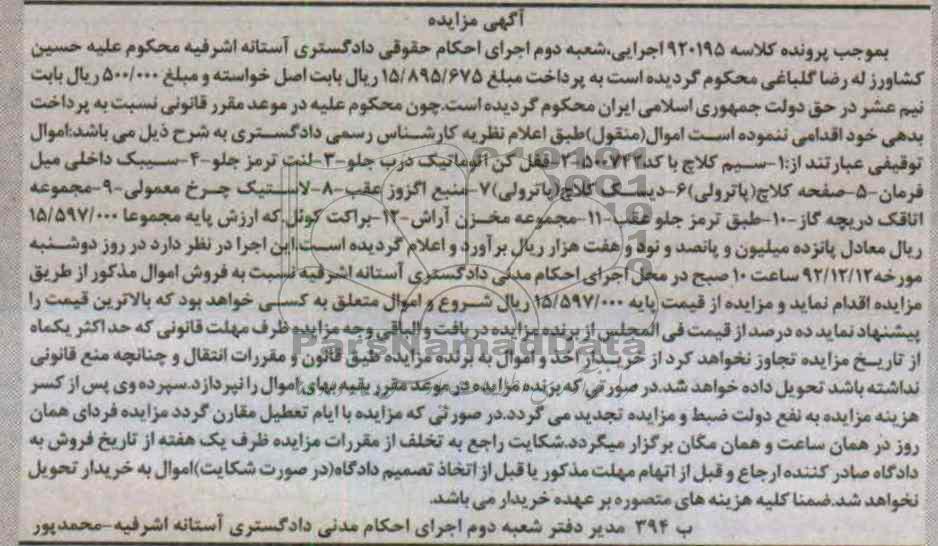 آگهی مزایده
بموجب پرونده کلاسه ۹۲۰۱۹۵ اجرایی،شعبه دوم اجرای احکام حقوقی دادگستری آستانه اشرفیه محکوم علیه حسین
کشاورز له رضا گلباغی محکوم گردیده است به پرداخت مبلغ ۱۵/۸۹۵/۶۷۵ ریال بابت اصل خواسته و مبلغ ۵۰۰/۰۰۰ ریال بابت
نیم عشر در حق دولت جمهوری اسلامی ایران محکوم گردیده است.چون محکوم علیه در موعد مقرر قانونی نسبت به پرداخت
بدهی خود اقدامی ننموده است اموال(منقول)طبق اعلام نظریه کارشناس رسمی دادگستری به شرح ذیل می باشد:اموال
توقیفی عبارتند از:۱-سیم کلاچ با کد ۵۰۰۷۴۲-۲-قفل کن اتوماتیک درب جلو-۳-لنت ترمز جلو-۴-سیبک داخلی میل
فرمان-۵-صفحه کلاچ(پاترولی)۶-دیسک کلاچ(پاترولی)۷-منبع اگزوز عقب-۸-لاستیک چرخ معمولی-۹-مجموعه
اتاقک دریچه گاز-۱۰-طبق ترمز جلو عقب-۱۱-مجموعه مخزن آراش-۱۲-براکت کوئل.که ارزش پایه مجموعا ۱۵/۵۹۷/۰۰۰
ریال معادل پانزده میلیون و پانصد و نود و هفت هزار ریال برآورد و اعلام گردیده است.این اجرا در نظر دارد در روز دوشنبه
مورخه ۹۲/۱۲/۱۲ ساعت ۱۰ صبح در محل اجرای احکام مدنی دادگستری آستانه اشرفیه نسبت به فروش اموال مذکور از طریق
مزایده اقدام نماید و مزایده از قیمت پایه ۱۵/۵۹۷/۰۰۰ ریال شروع و اموال متعلق به کسی خواهد بود که بالاترین قیمت را
پیشنهاد نماید ده درصد از قیمت فی المجلس از برنده مزایده دریافت و الباقی وجه مزایده ظرف مهلت قانونی که حداکثر یکماه
از تاریخ مزایده تجاوز نخواهد کرد از خریدار اخذ و اموال به برنده مزایده طبق قانون و مقررات انتقال و چنانچه منع قانونی
نداشته باشد تحویل داده خواهد شد.در صورتی که برنده مزایده در موعد مقرر بقیه بهای اموال را نپردازد.سپرده وی پس از کسر
هزینه مزایده به نفع دولت ضبط و مزایده تجدید می گردد.در صورتی که مزایده با ایام تعطیل مقارن گردد مزایده فردای همان
روز در همان ساعت و همان مکان برگزار میگردد.شکایت راجع به تخلف از مقررات مزایده ظرف یک هفته از تاریخ فروش به
دادگاه صادر کننده ارجاع و قبل از اتهام مهلت مذکور یا قبل از اتخاذ تصمیم دادگاه(در صورت شکایت)اموال به خریدار تحویل
نخواهد شد.ضمنا کلیه هزینه های متصوره بر عهده خریدار می باشد.
ب ۳۹۴ مدیر دفتر شعبه دوم اجرای احکام مدنی دادگستری آستانه اشرفیه-محمدپور
ParsNamadData